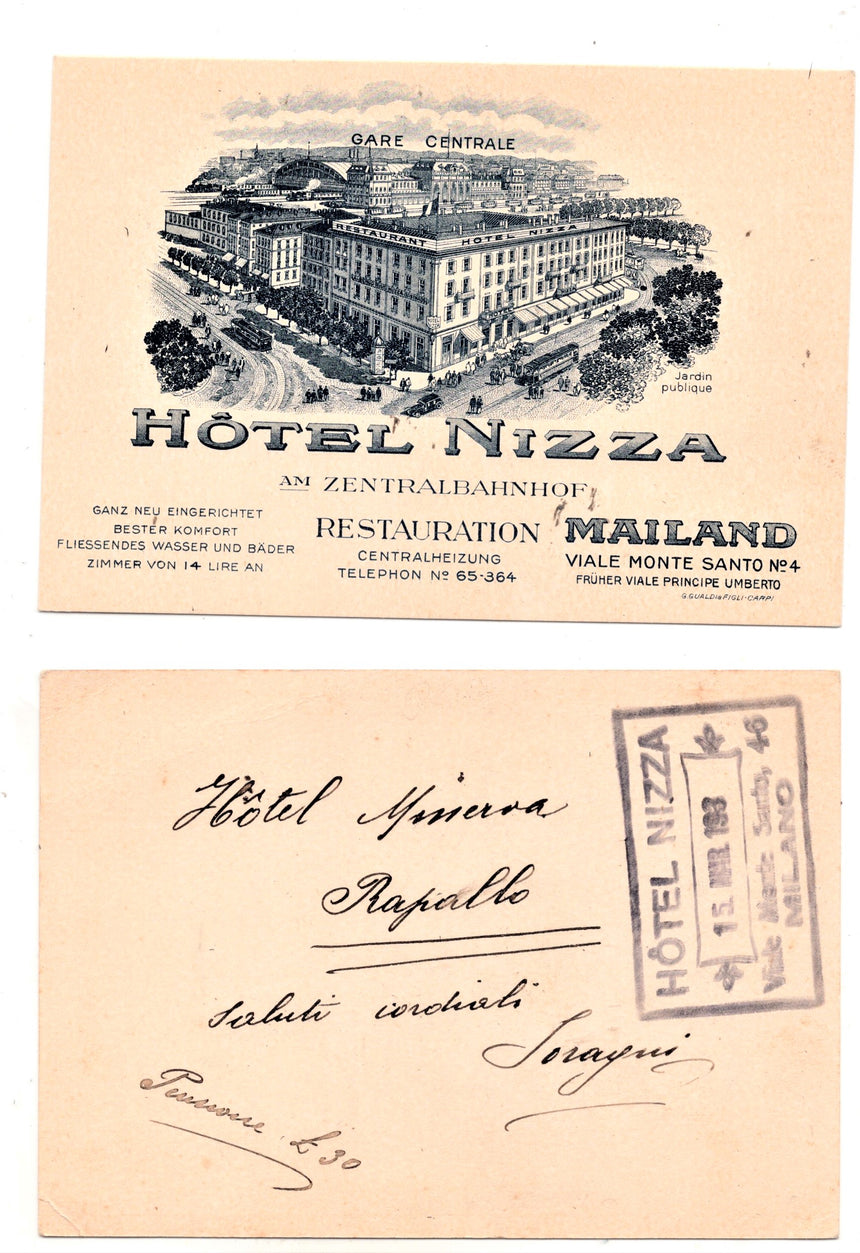 GARE CENTRALE
RESTAURANT HOTEL NIZZA
Jardin
publique
HÔTEL NIZZA
AM ZENTRALBAHNHOF
GANZ NEU EINGERICHTET
BESTER KOMFORT
FLIESSENDES WASSER UND BÄDER
ZIMMER VON 14 LIRE AN
RESTAURATION
CENTRALHEIZUNG
TELEPHON Nº 65-364
MAILAND
VIALE MONTE SANTO Nº 4
FRÜHER VIALE PRINCIPE UMBERTO
G. GUALDI & FIGLI - CARPI
Hôtel Minerva
Rapallo
Saluti cordiali
Soragni
Pensione £ 30
HÔTEL NIZZA
15 MAR 193
Viale Monte Santo, 46
MILANO